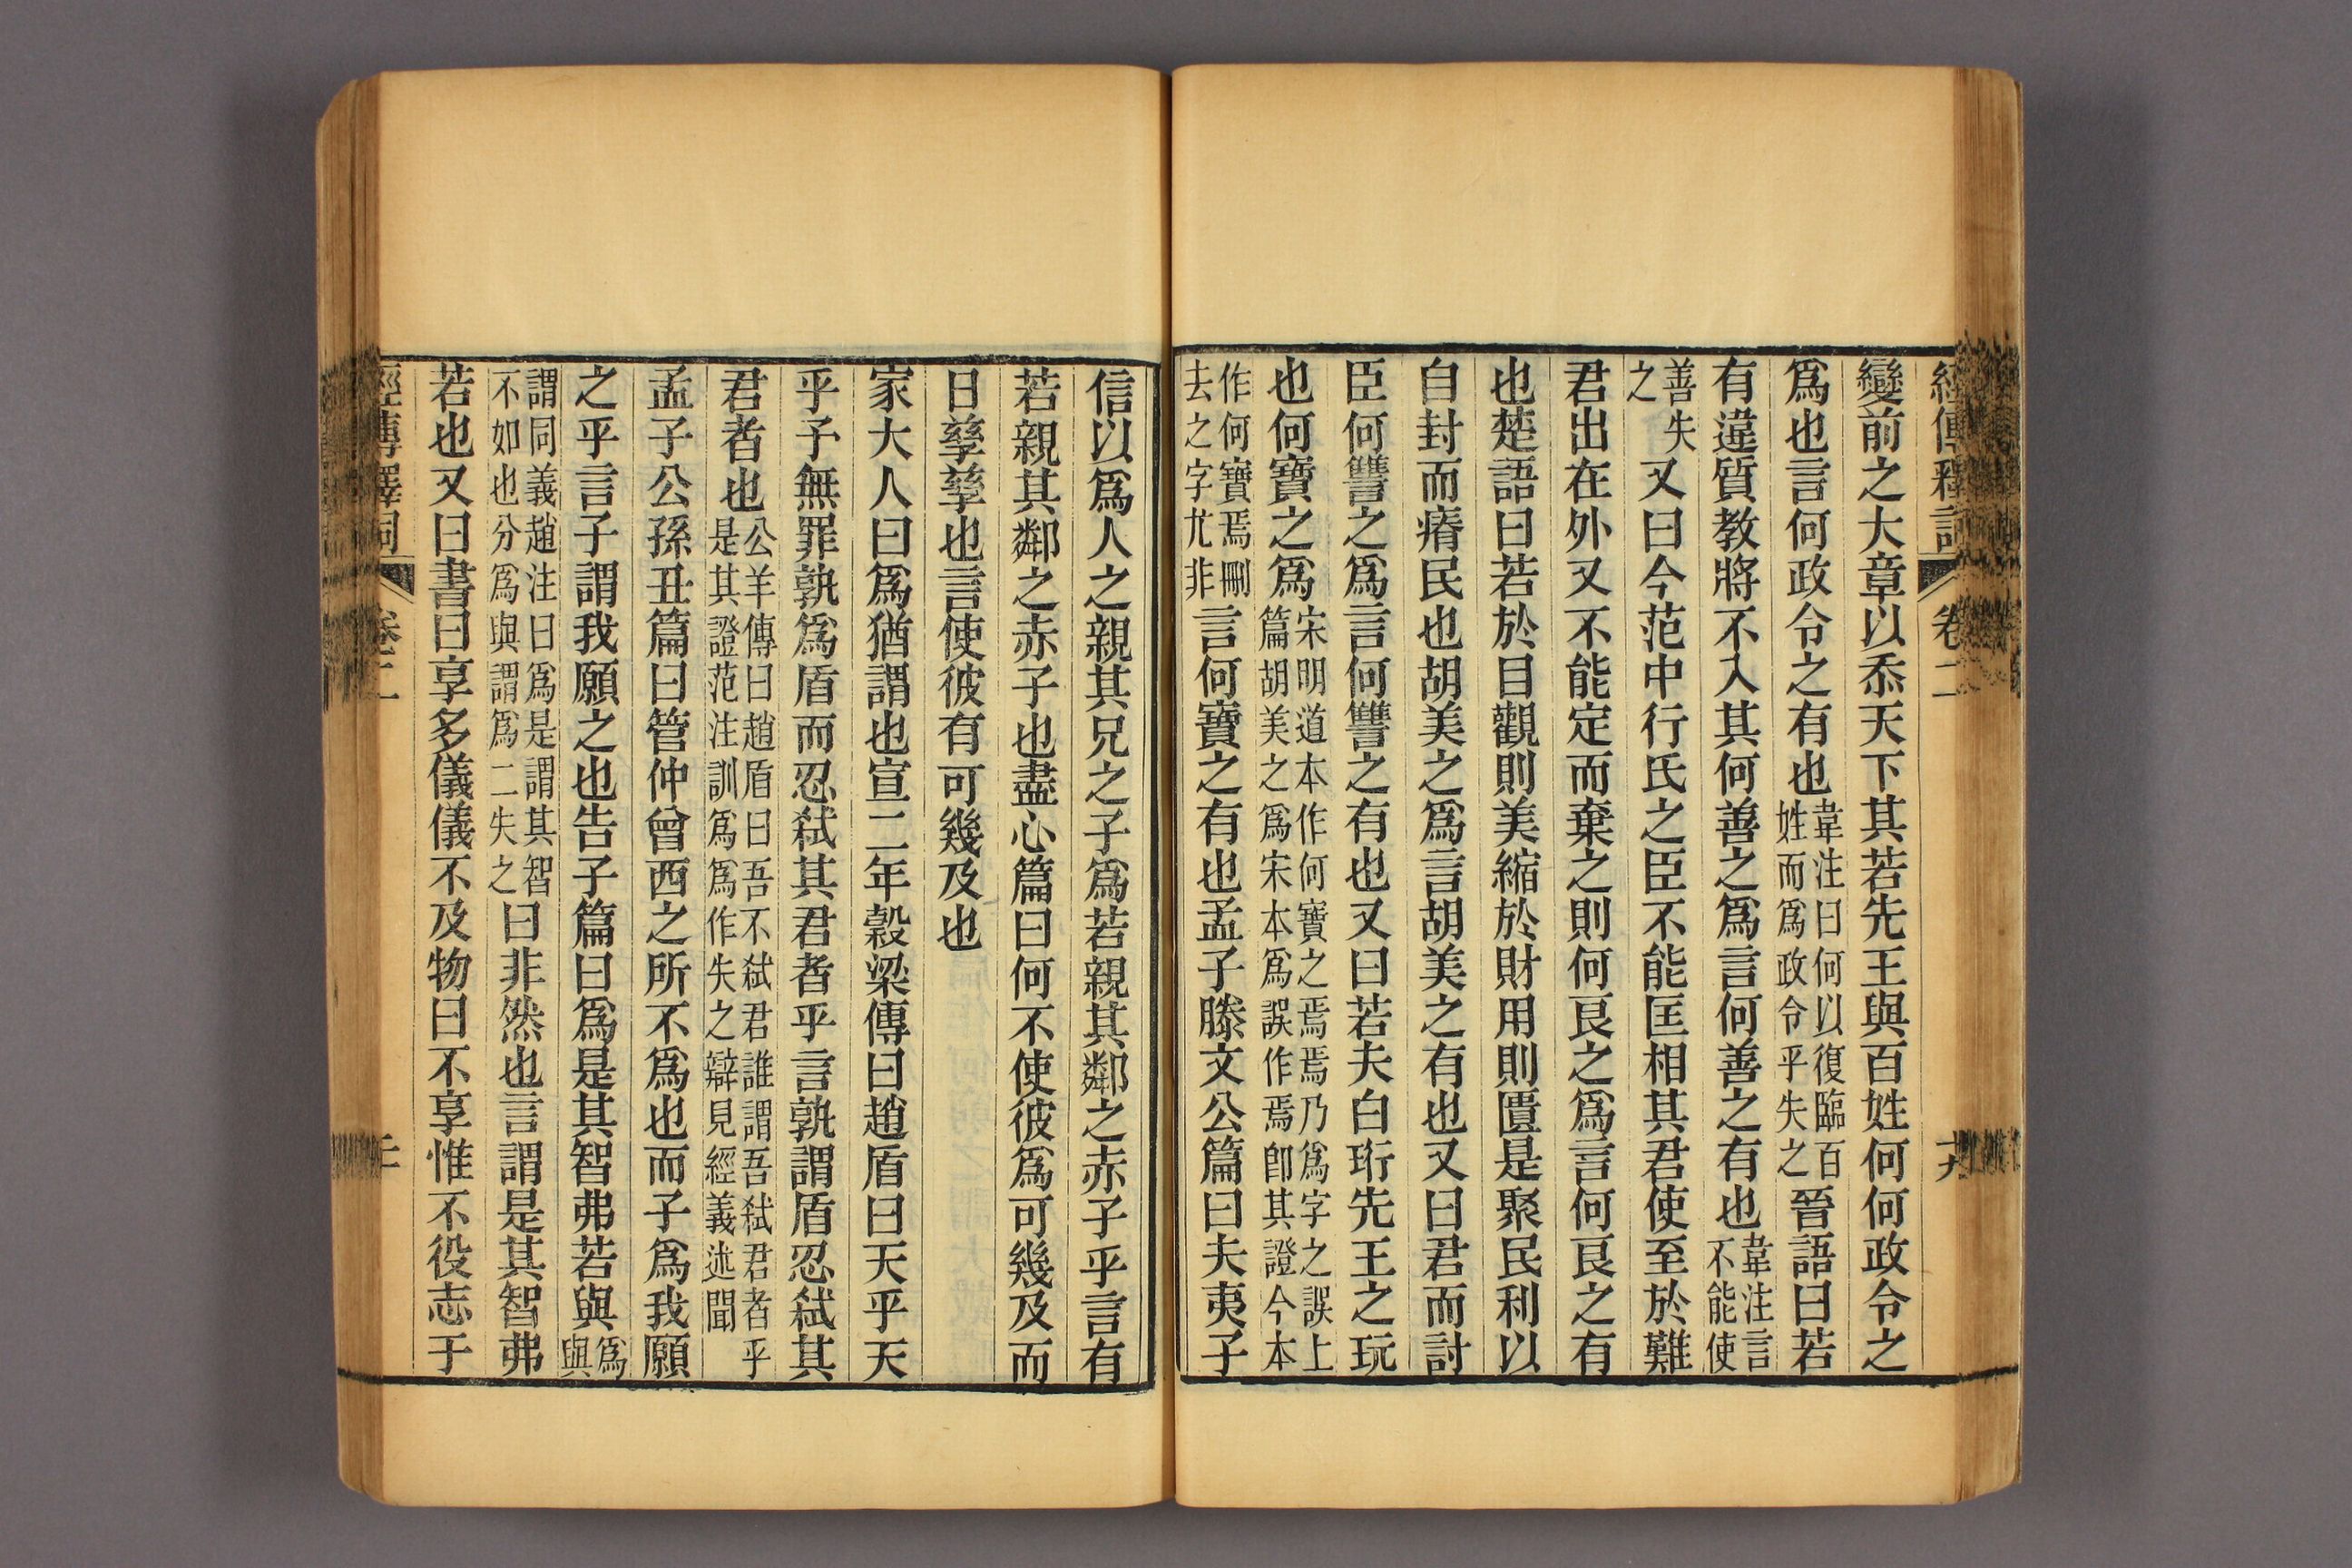 經傳釋詞 卷二 十九
變前之大章以忝天下其若先王與百姓何何政令之
爲也言何政令之有也韋注曰何以復臨百姓而爲政令乎失之晉語曰若
有違質教將不入其何善之爲言何善之有也韋注言不能使
善失之又曰今范中行氏之臣不能匡相其君使至於難
君出在外又不能定而棄之則何良之爲言何良之有
也楚語曰若於目觀則美縮於財用則匱是聚民利以
自封而瘠民也胡美之爲言胡美之有也又曰君而討
臣何讐之爲言何讐之有也又曰若夫白珩先王之玩
也何寶之爲宋明道本作何寶之焉焉乃爲字之誤上篇胡美之爲宋本爲誤作焉卽其證今本
作何寶焉刪去之字尤非言何寶之有也孟子滕文公篇曰夫夷子
信以爲人之親其兄之子爲若親其鄰之赤子乎言有
若親其鄰之赤子也盡心篇曰何不使彼爲可幾及而
日孳孳也言使彼有可幾及也
家大人曰爲猶謂也宣二年榖梁傳曰趙盾曰天乎天
乎予無罪孰爲盾而忍弒其君者乎言孰謂盾忍弒其
君者也公羊傳曰趙盾曰吾不弒君誰謂吾弒君者乎是其證范注訓爲爲作失之辯見經義述聞
孟子公孫丑篇曰管仲曾西之所不爲也而子爲我願
之乎言子謂我願之也告子篇曰爲是其智弗若與爲與
謂同義趙注曰爲是謂其智不如也分爲與謂爲二失之曰非然也言謂是其智弗
若也又曰書曰享多儀儀不及物曰不享惟不役志于
經傳釋詞 卷二 二十